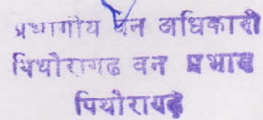 प्रभागीय वन अधिकारी
पिथौरागढ वन प्रभाग
पिथौरागढ़